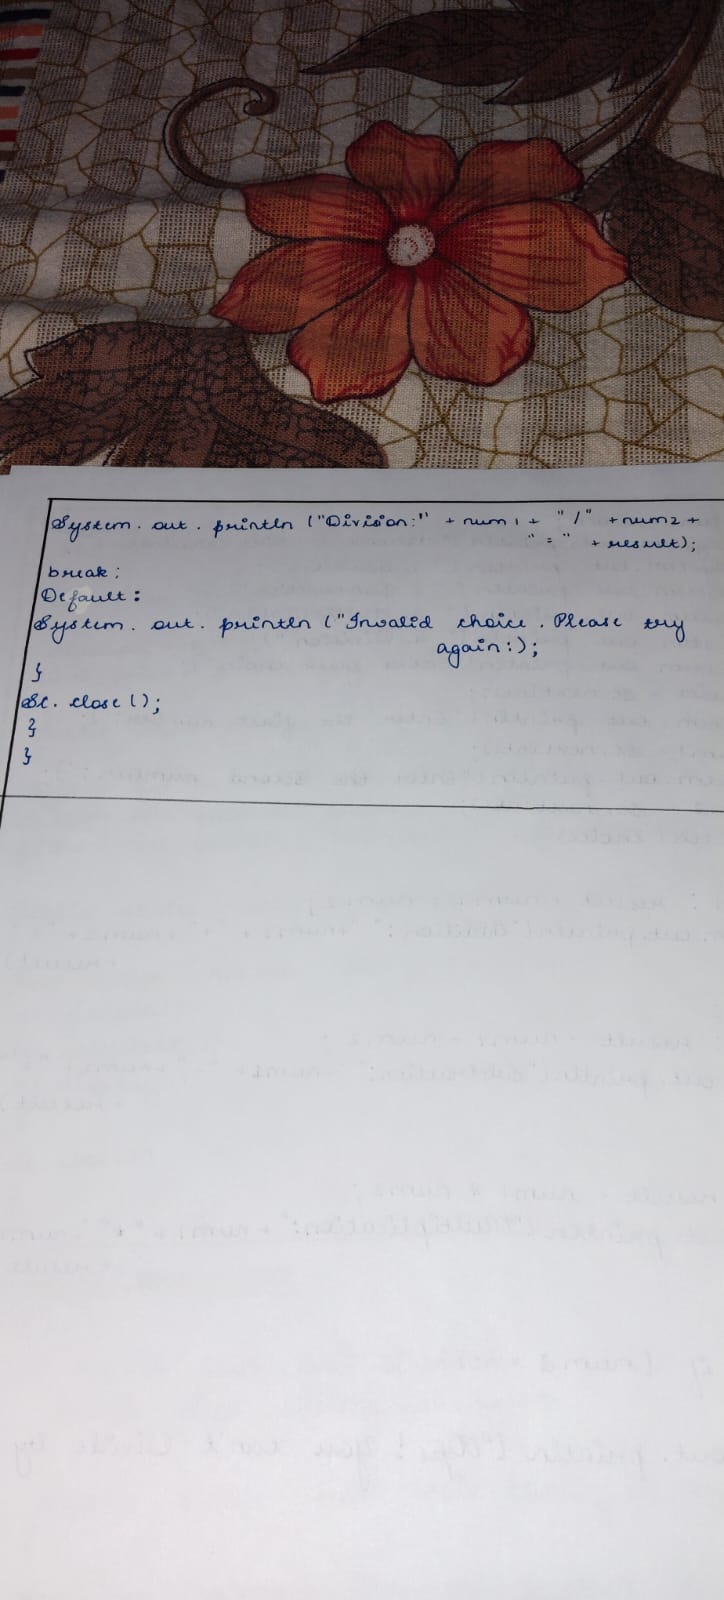 System. out. println ("Division:" + num1 + "/" + num2 +
"=" + result);
break;
Default:
System. out. println ("Invalid choice. Please try
again:);
}
Sc. close ();
}
}